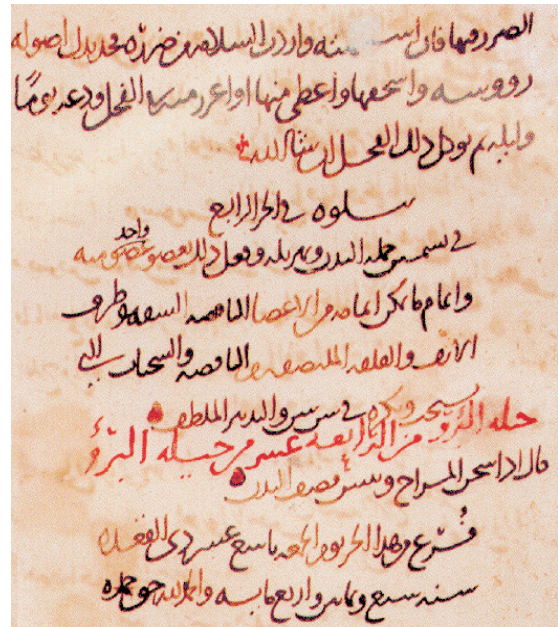 الضرر فيها فان اسـ منه واردت السلامه من ضرره فخذ بدل اصوله
رووسه واسحقها واعطى منها او اغرز منه الفجل ودعه يومًا
وليله ثم يوكل ذلك الفجل ان شا الله
يتلوه في الجز الرابع
في تسمين جمله البدن وتهزيله وفعل ذلك بعضو عضو منه
واحد
واتمام ما يمكن اتمامه من الاعضا الناقصه الشفه وطرف
الانف والقلفه الملتصقه الناقصه والسحاب التي
في والتدبير الملطف
حيله البرؤ من الرابعه عشر من حيله البرؤ
قال اذا سخن المزاج ويبس قضف البدن
فُرغ من هذا الجز يوم الجمعه تاسع عشر ذي القعده
سنه سبع وثمانين واربع مايه والحمد لله حق حمده